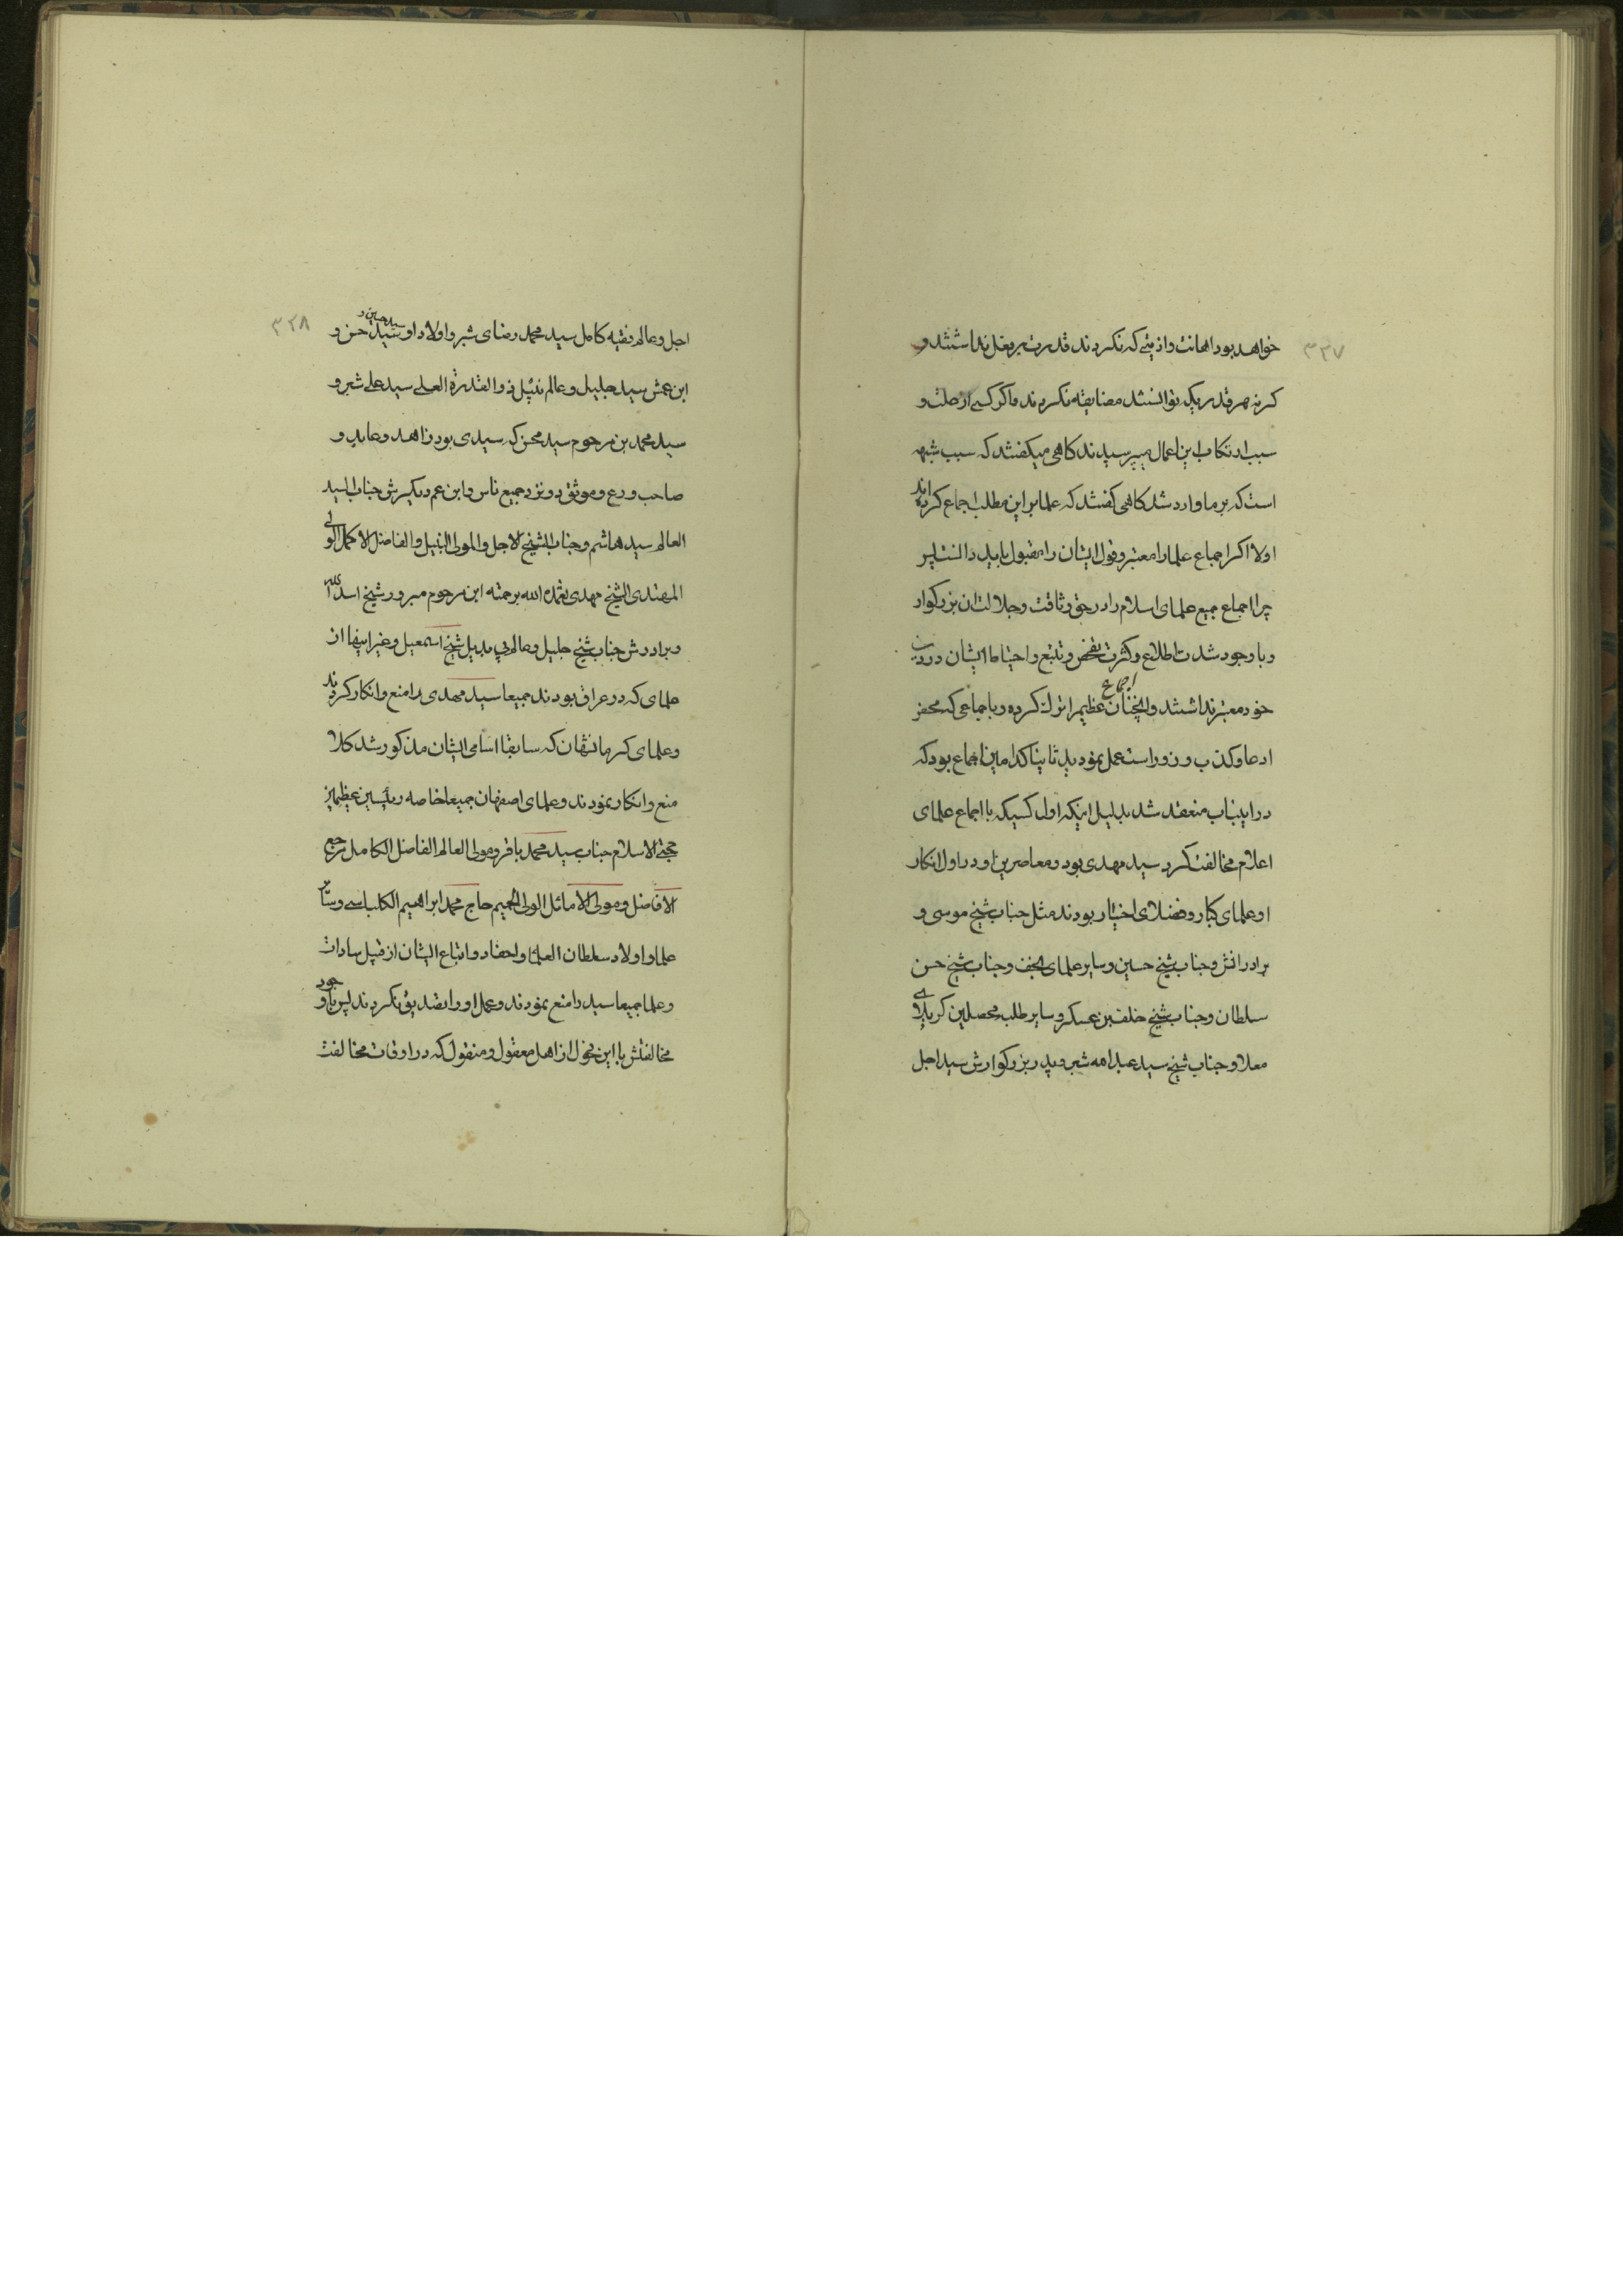 ۳۳۷
خواهد بود اهانت و اذیتی که نکردند قدرت بر فعل نداشتند و
کرنه هر قدریکه توانستند مضایقه نکردند و اکر کسی از علت و
سبب ارتکاب این اعمال میپرسیدند کاهی میکفتند که سبب شبهه
است که بر ما وارد شد کاهی کفتند که علما بر این مطلب اجماع کرده اند
اولا اکر اجماع علما را معتبر و قول ایشان را مقبول باید دانست پس
چرا اجماع جمیع علمای اسلام را در حق وثاقت و جلالت ان بزرکوار
و با وجود شدت اطلاع و کثرت تفحص و تتبع و احتیاط ایشان در دین
خود معتبر نداشتند و انچنان اجماع عظیم را ترک کرده و با جماعی که محض
ادعا و کذب و زور است عمل نمودید ثانیا کدامین اجماع بود که
در اینباب منعقد شد بدلیل اینکه اول کسیکه با اجماع علمای
اعلام مخالفت کرد سید مهدی بود و معاصرین او در اول انکار
او علمای کبار و فضلای اخیار بودند مثل جناب شیخ موسی و
برادرانش و جناب شیخ حسین و سایر علمای نجف و جناب شیخ حسن
سلطان و جناب شیخ خلف بن عسکر و سایر طلبه محصلین کربلای
معلا و جناب شیخ سید عبدالله شبر و پدر بزرکوارش سید اجل
۳۳۸
اجل و عالم فقیه کامل سید محمد رضای شبر و اولاد او سید حسین و سید حسن و
ابن عمش سید جلیل و عالم نبیل ذو القدرة العلی سید علی شبر و
سید محمد بن مرحوم سید محسن که سیدی بود زاهد و عابد و
صاحب ورع و موثق و نزد جمیع ناس و ابن عم دیکرش جناب السید
العالم سید هاشم و جناب الشیخ الاجل و المولی النبیل و الفاضل الاکمل الولی
المهتدی الشیخ مهدی تغمده الله برحمته ابن مرحوم مبرور شیخ اسد الله
و برادرش جناب شیخ جلیل و عالم بی بدیل شیخ اسمعیل و غیر اینها از
علمای که در عراق بودند جمیعا سید مهدی را منع و انکار کردند
و علمای کرمانشهان که سابقا اسامی ایشان مذکور شد کلا
منع و انکار نمودند و علمای اصفهان جمیعا خاصه رئیسین عظیمین
حجتی الاسلام جناب سید محمد باقر و مولی العالم الفاضل الکامل مرجع
الافاضل و مولی الاماثل الولی الحمیم حاج محمد ابراهیم الکلباسی و سایر
علما و اولاد سلطان العلما و احفاد و اتباع ایشان از قبیل سادات
و علما جمیعا سید را منع نمودند و عمل او را تصدیق نکردند پس با وجود
مخالفتش با این فحول از اهل معقول و منقول که در اوقات مخالفت